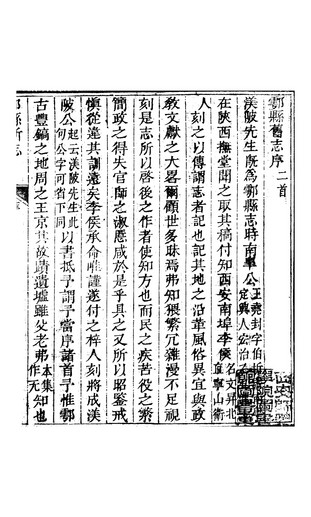 鄠縣舊志序二首
渼陂先生既為鄠縣志時南皋公王堯封字伯圻定興人宏治
在陝西撫臺聞之取其稿付知西安南埠李侯名文昇北直寧山衛
人刻之以傳謂志者記也記其地之沿革風俗異宜與政
教文獻之大畧爾顧世多昧焉弗知猥繁冗雜漫不足視
刻是志所以啓後之作者使知方也而民之疾苦役之繁
簡政之得失官師之淑慝咸於是乎具之又所以昭鑒戒
慎從違其訓遠矣李侯承命唯謹遂付之梓人刻將成渼
陂公起云渼陂先生此句公字可省下同以書抵予謂予當序諸首予惟鄠
古豐鎬之地周之王京其故蹟遺墟雖父老弗本集作无知也
鄠縣新志